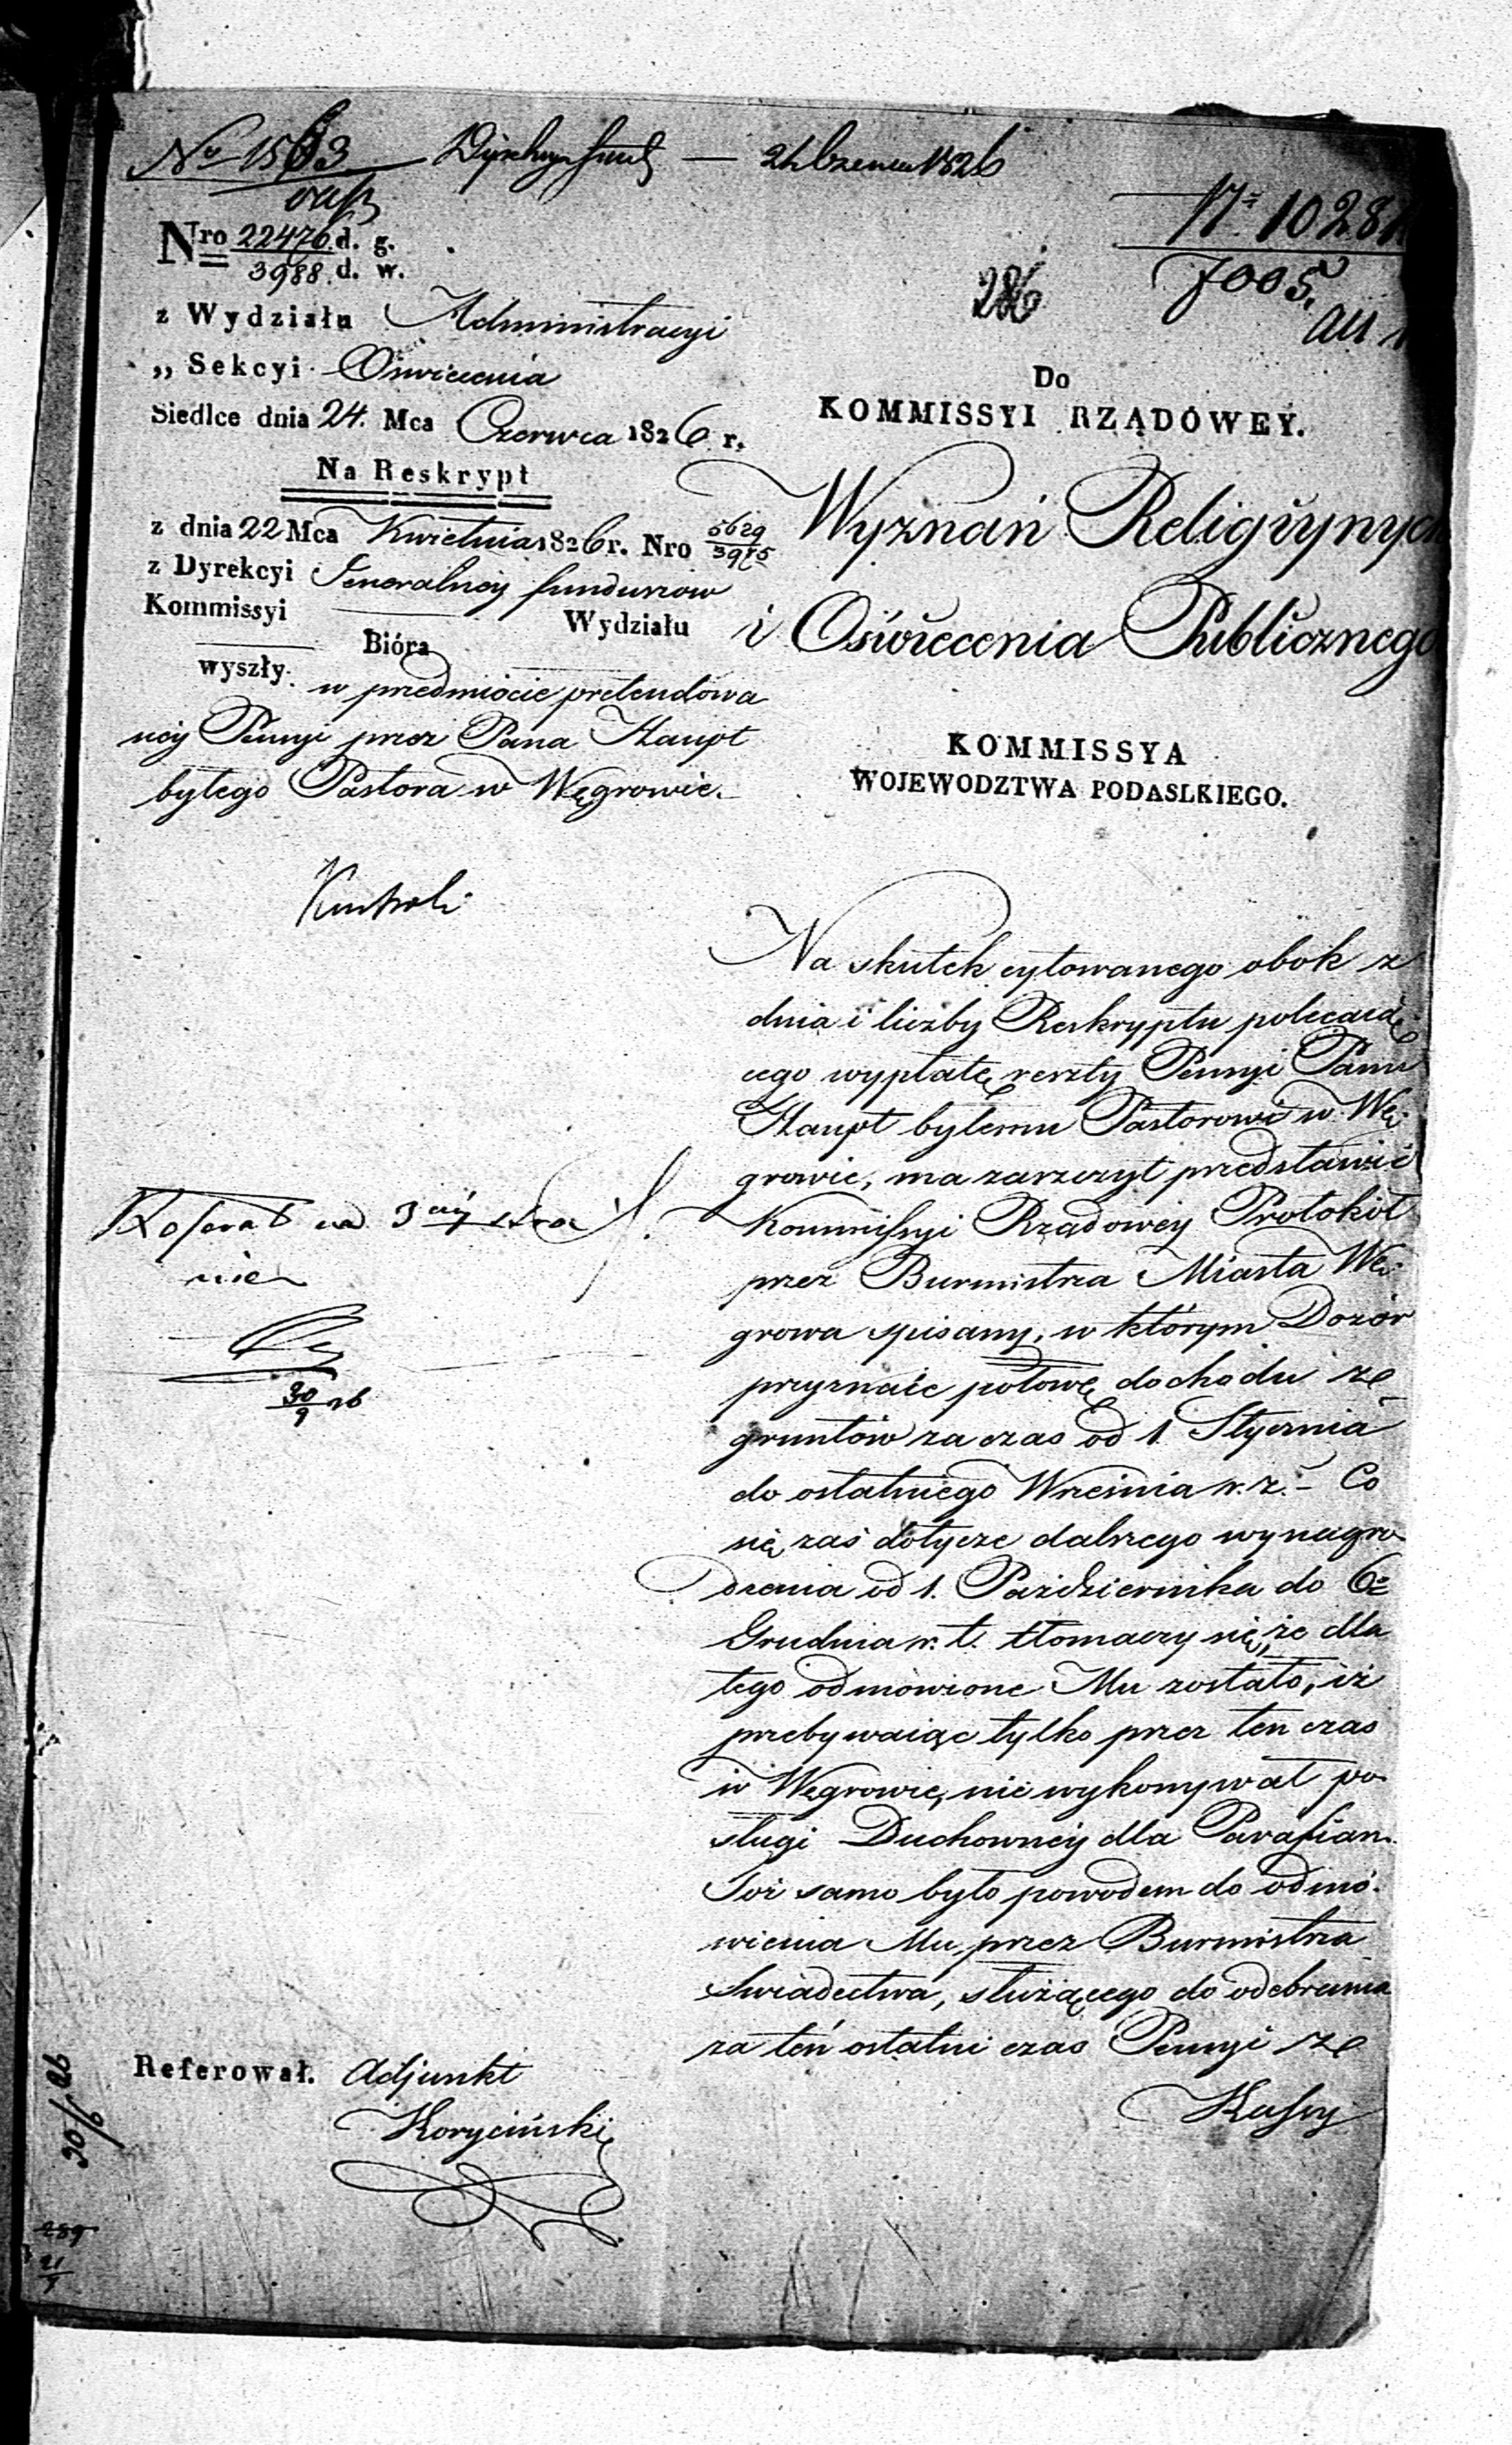 No 1563
24 Czerwca 1826
Nro 22476 d. g.
3988. d. w.
z Wydziału Administracyi
„ Sekcyi Oświecenia
Siedlce dnia 24. Mca Czerwca 1826 r.
Na Reskrypt
z dnia 22 Mca Kwietnia 1826 r. Nro 5629
3985
z Dyrekcyi Jeneralney funduszow
Kommissyi Wydziału
Bióra
wyszły. w przedmiocie pretendowa
ney Pensyi przez Pana Haupt
byłego Pastora w Węgrowie.
Kontroli
na 3ciéy stro
nie
30/9 26
Referował. Adjunkt
Koryciński
30/9 26
289
21
Nr 1028
7005.
286
Do
KOMMISSYI RZĄDOWEY.
Wyznań Religiynych
i Oświecenia Publicznego
KOMMISSYA
WOJEWODZTWA PODASLKIEGO.
Na skutek cytowanego obok z
dnia i liczby Reskryptu polecaią
cego wypłatę reszty Pensyi Panu
Haupt byłemu Pastorowi w Wę-
growie, ma zaszczyt przedstawić
Kommissyi Rządowéy Protokół
przez Burmistrza Miasta Wę-
growa spisany, w którym Dozór
przyznaie połowę dochodu ze
gruntów za czas od 1 Stycznia
do ostatniego Września r. z. – Co
się zaś dotycze dalszego wynagro
dzenia od 1. Października do 6o
Grudnia r. t. tłomaczy się, że dla
tego odmówione Mu zostało, iż
przebywaiąc tylko przez ten czas
w Węgrowie, nie wykonywał po
sługi Duchownéy dla Parafian.
Toż samo było powodem do odmó-
wienia Mu, przez Burmistrza
Swiadectwa, służącego do odebrania
za ten ostatni czas Pensyi ze
Kassy